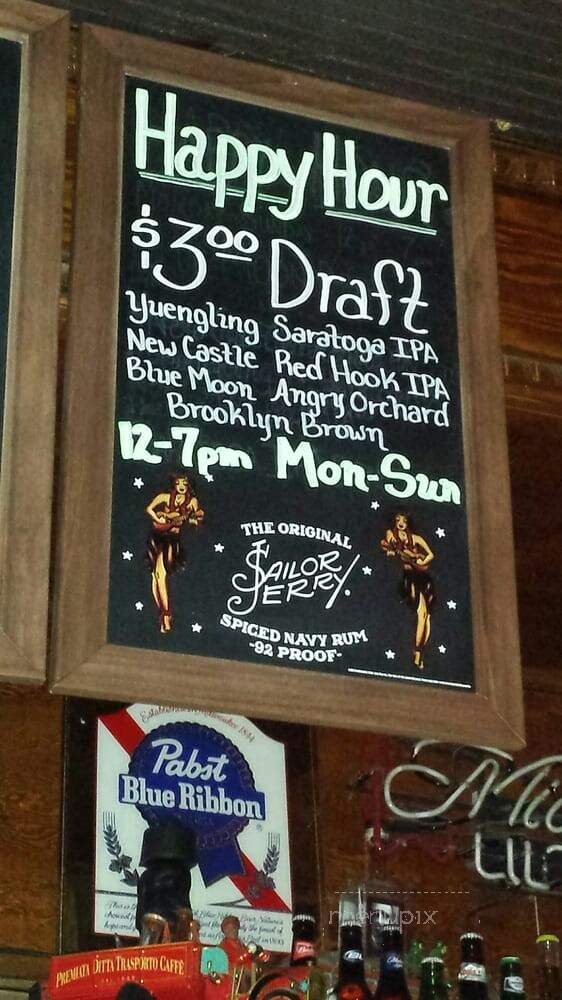 Happy Hour
$3.00 Draft
Yuengling Saratoga IPA
New Castle Red Hook IPA
Blue Moon Angry Orchard
Brooklyn Brown
12-7pm Mon-Sun
THE ORIGINAL
SAILOR
JERRY.
SPICED NAVY RUM
-92 PROOF-
Established in Milwaukee 1844
Pabst
Blue Ribbon
menupix
PREMIATA DITTA TRASPORTO CAFFÈ